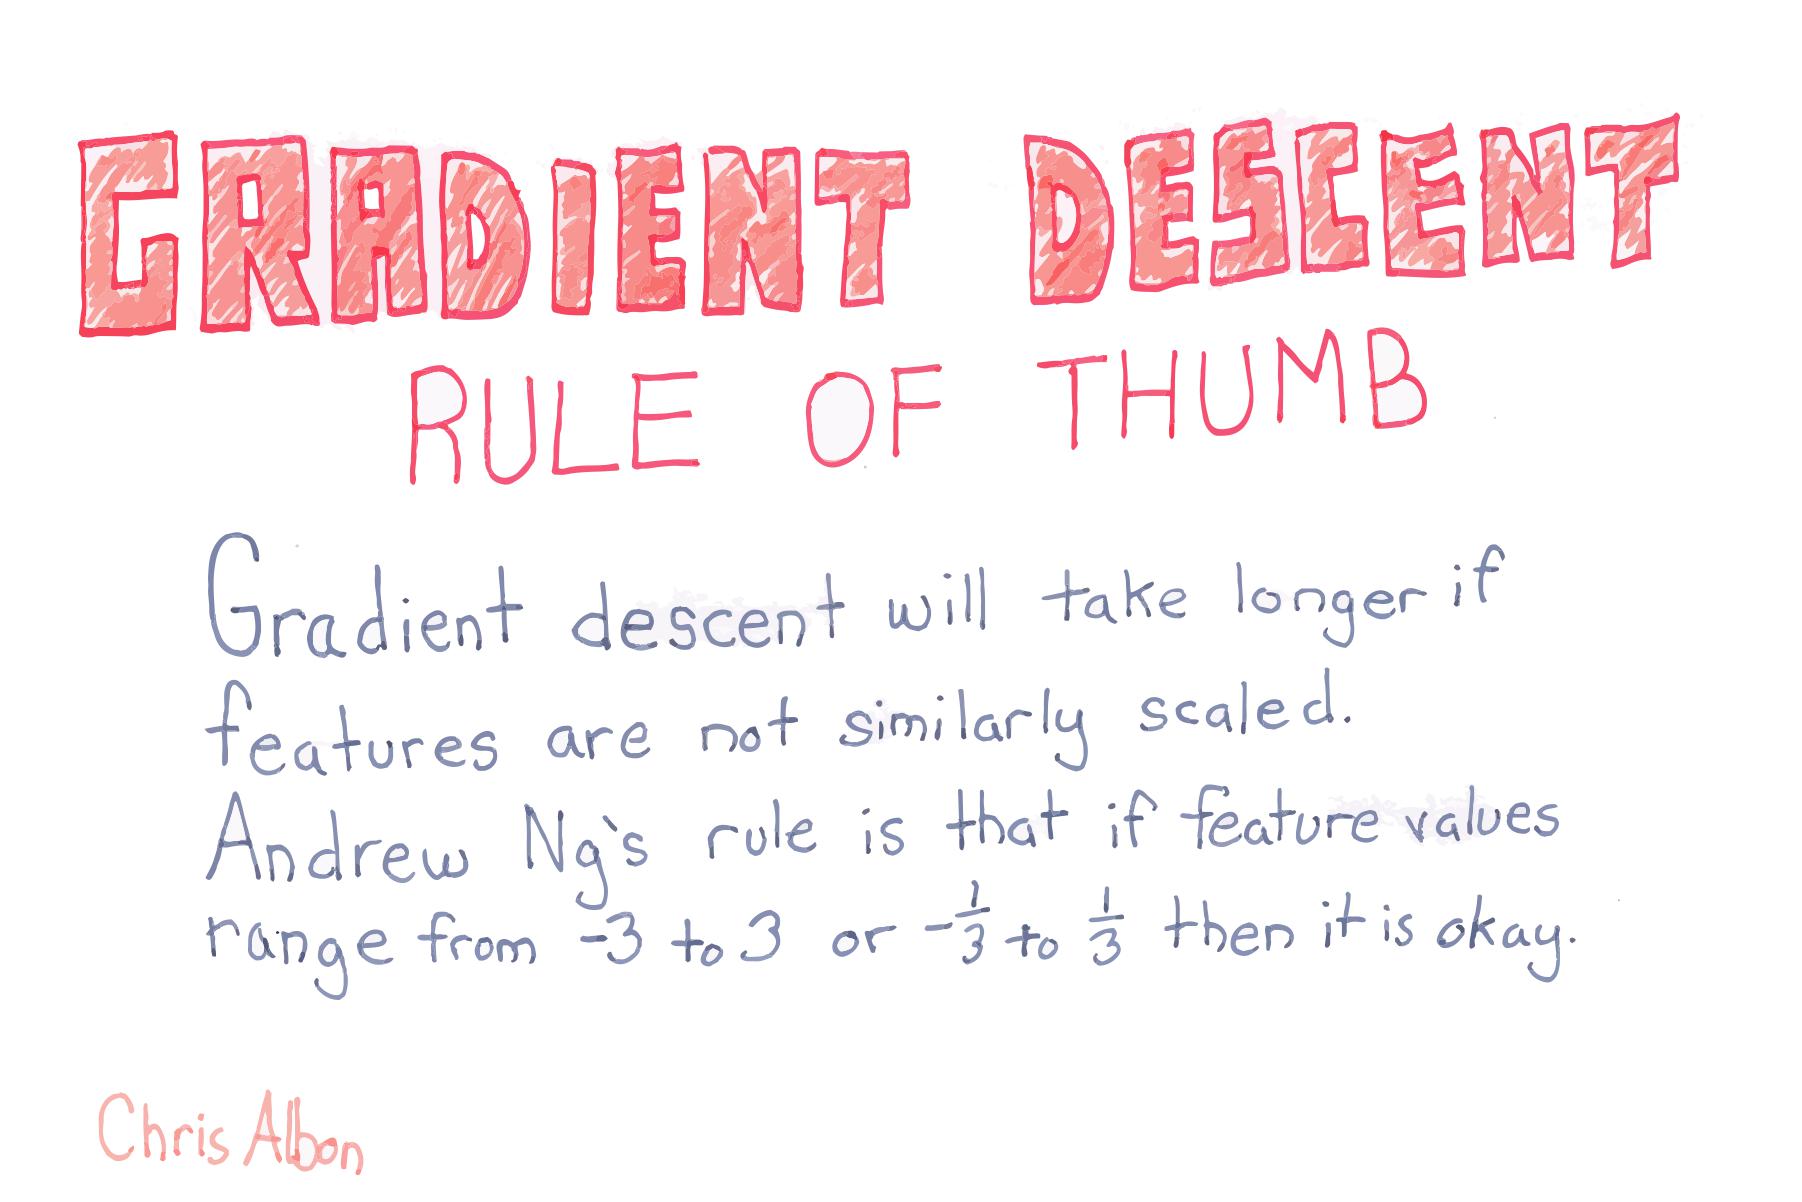 GRADIENT DESCENT
RULE OF THUMB
Gradient descent will take longer if
features are not similarly scaled.
Andrew Ng's rule is that if feature values
range from -3 to 3 or -1/3 to 1/3 then it is okay.
Chris Albon